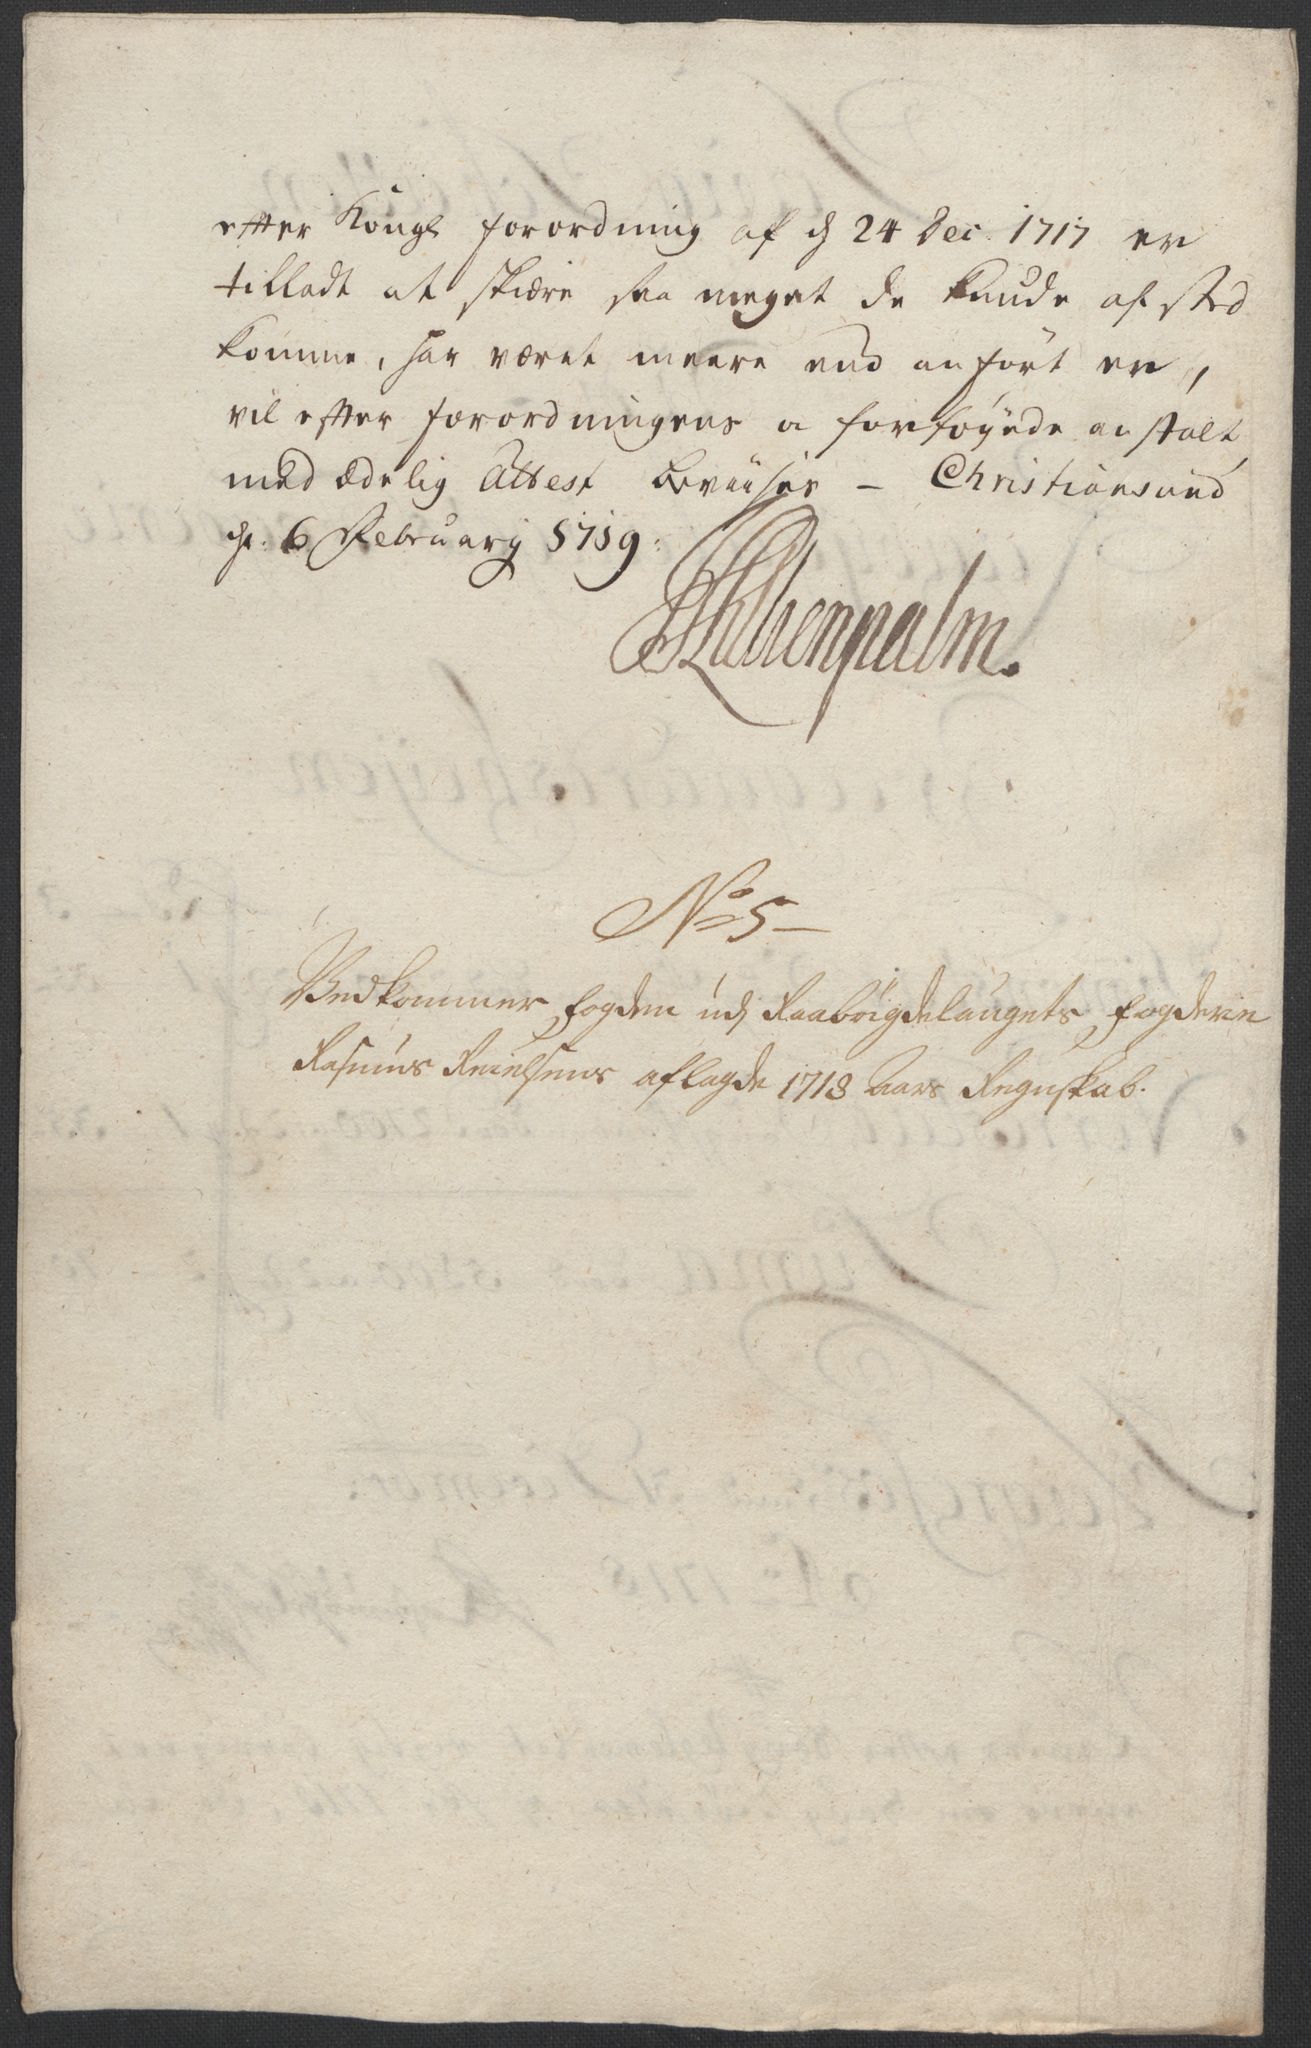 efter Kongl forordning af d 24 Dec: 1717 er
tilladt at skiære saa meget de kunde af sted
komme, har været meere end anfört er,
vil efter forordningens a forföyede anstalt
med ædelig Attest beviises – Christiansund
d: 6 February 1719:
Lillienpalm.
No 5 –
Vedkommer fogden udj Raaböigdelaugets fogderie
Rasmus Reielsens aflagde 1718 Aars Reguskab.